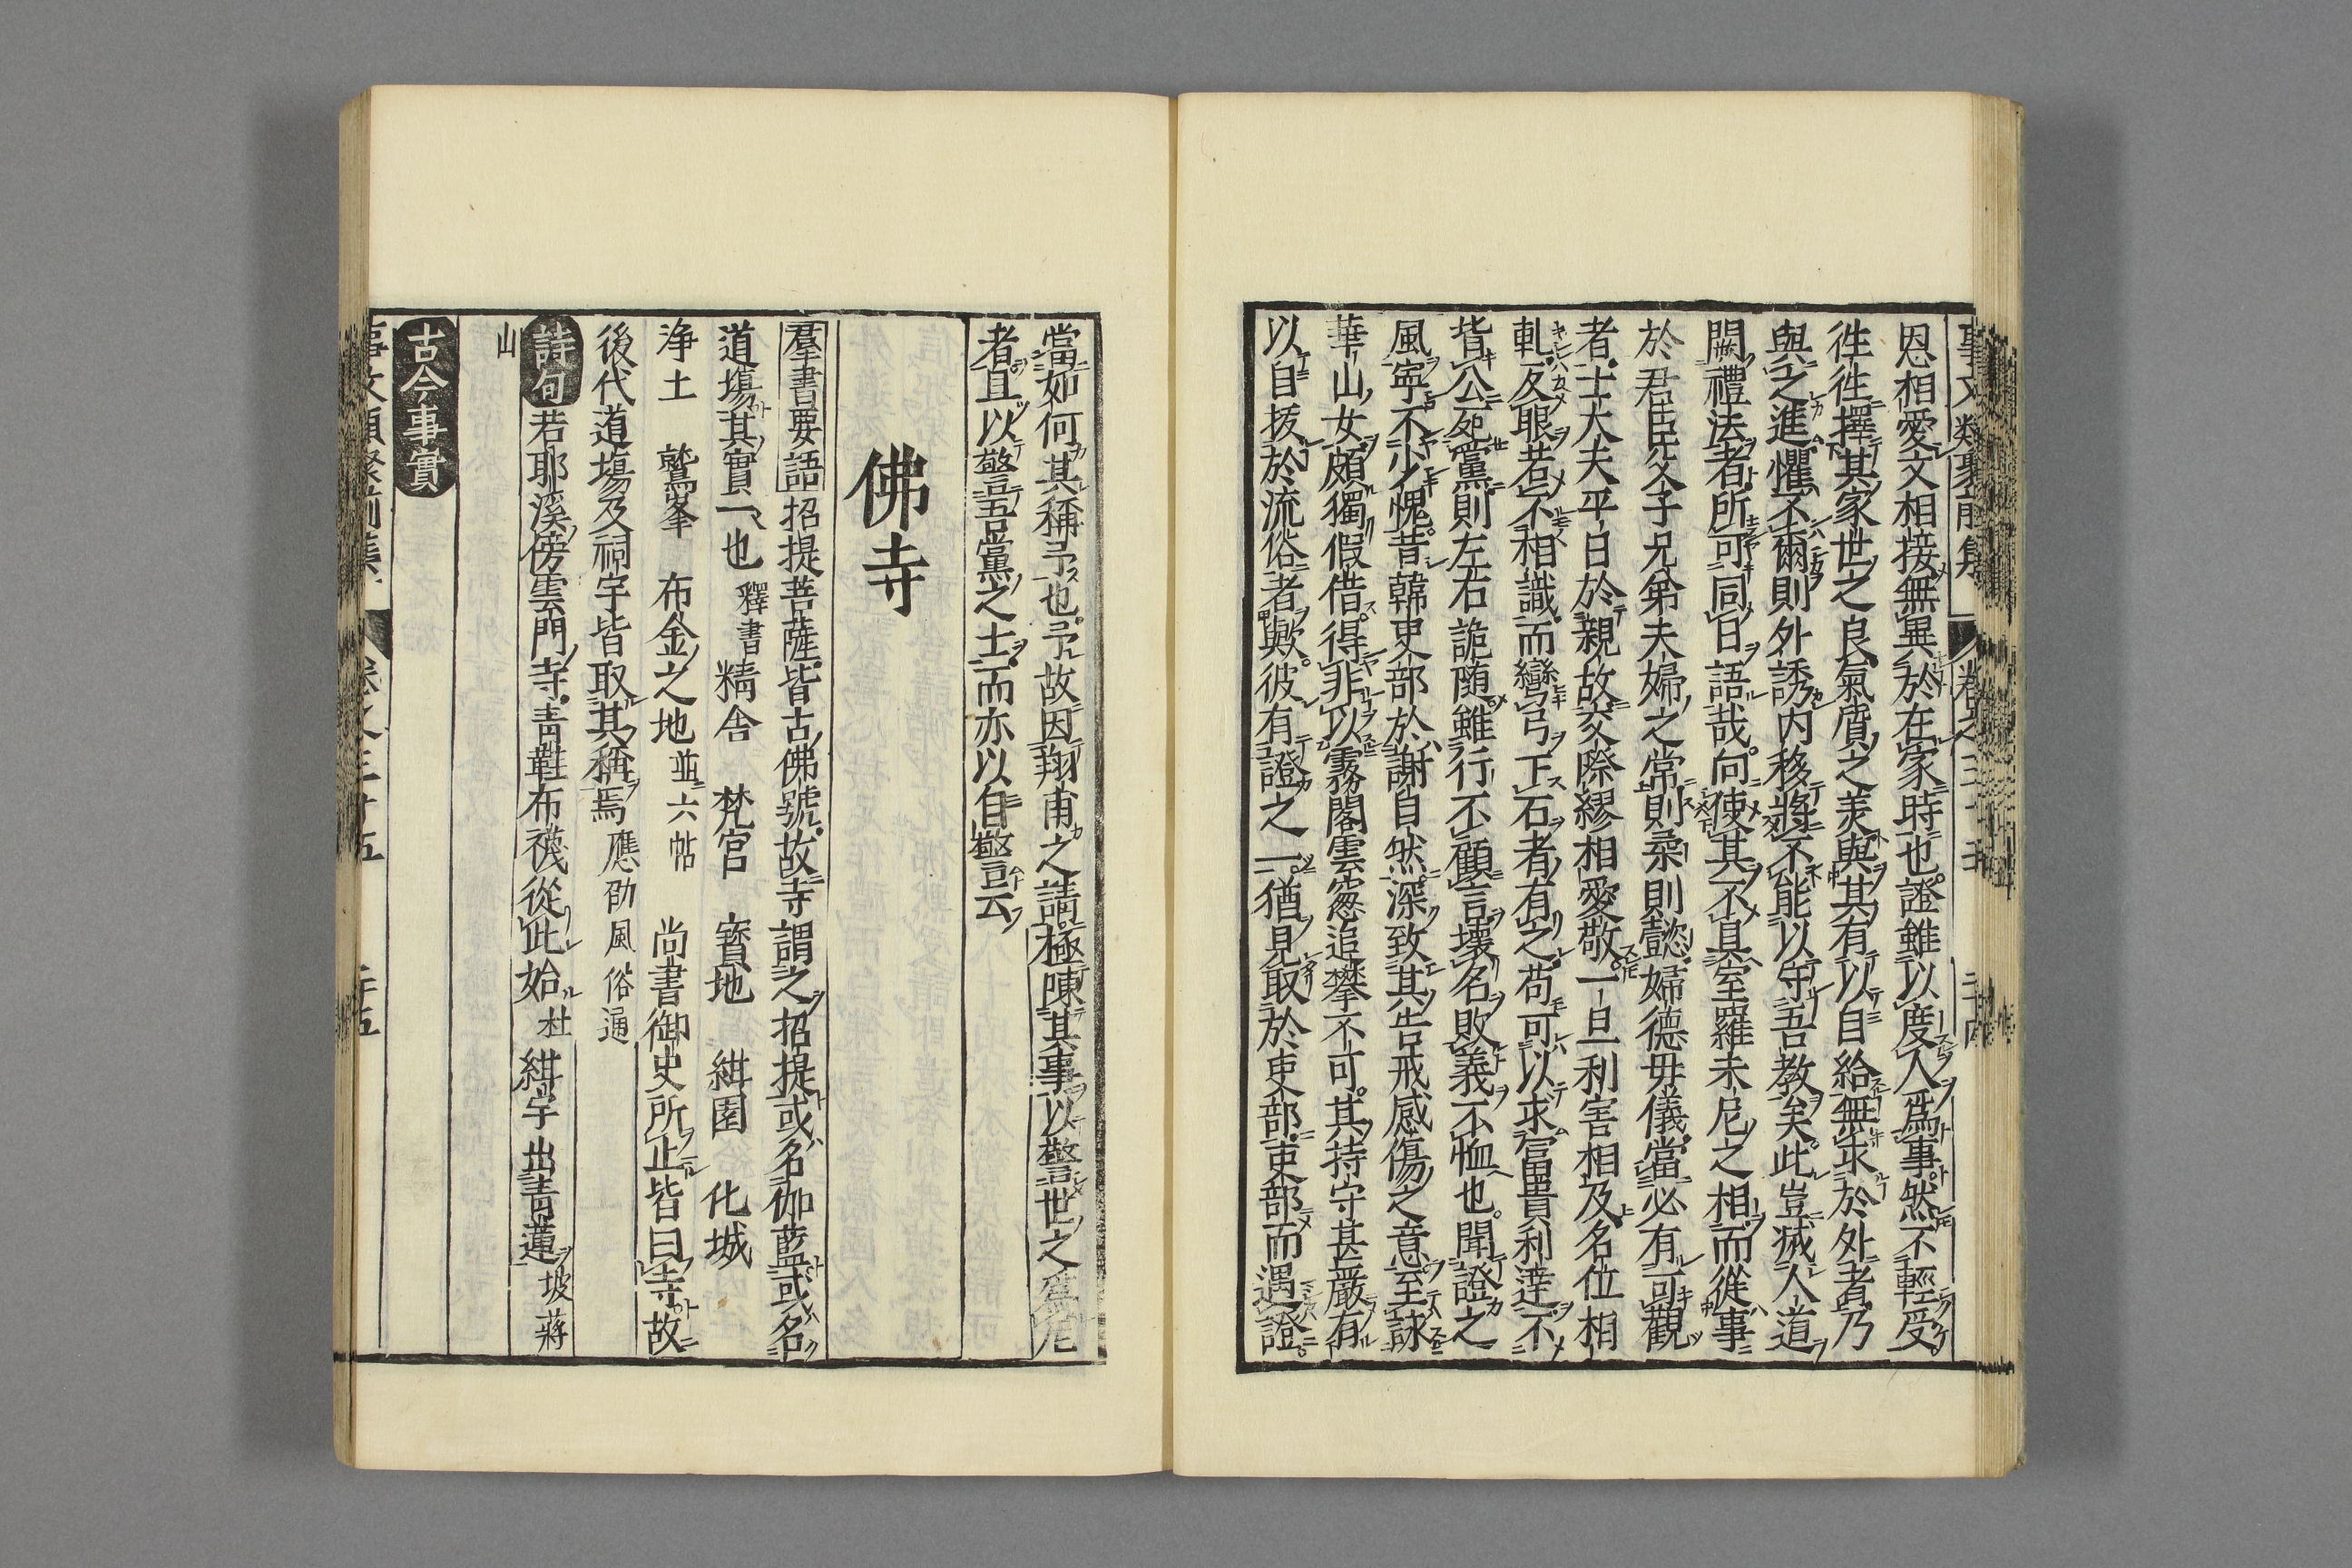 事文類聚前集 卷之三十五 二十四
恩相愛文相接無異於在家時也證雖以度人爲事然不輕受
徃徃擇其家世之良氣質之美與其有以自給無求於外者乃
與之進懼不爾則外誘内移將不能以守吾教矣此豈滅人道
闕禮法者所可同日語哉向使其不具室羅未尼之相而從事
於君臣父子兄弟夫婦之常則柔則懿婦德毋儀當必有可觀
者士大夫平日於親故交際繆相愛敬一旦利害相及名位相
軋反眼若不相識而彎弓下石者有之苟可以求富貴利達不
背公死黨則左右詭隨雖行不顧言壞名敗義不恤也聞證之
風寜不少愧昔韓吏部於謝自然深致其告戒感傷之意至詠
華山女頗獨假借得非以霧閣雲窓追攀不可其持守甚嚴有
以自拔於流俗者歟彼有證之一猶見取於吏部吏部而遇證
當如何其稱予也予故因翔甫之請極陳其事以警世之爲尼
者且以警吾黨之士而亦以自警云
佛寺
羣書要語招提菩薩皆古佛號故寺謂之招提或名伽藍或名
道塲其實一也釋書精舎 梵宮 寳地 紺園 化城
浄土 鷲峯 布金之地並六帖 尚書御史所止皆曰寺故
後代道塲及祠宇皆取其稱焉應劭風俗通
詩句若耶溪傍雲門寺青鞋布襪從此始杜紺宇出青蓮坡蔣
山
古今事實
事文類聚前集 卷之三十五 二十五